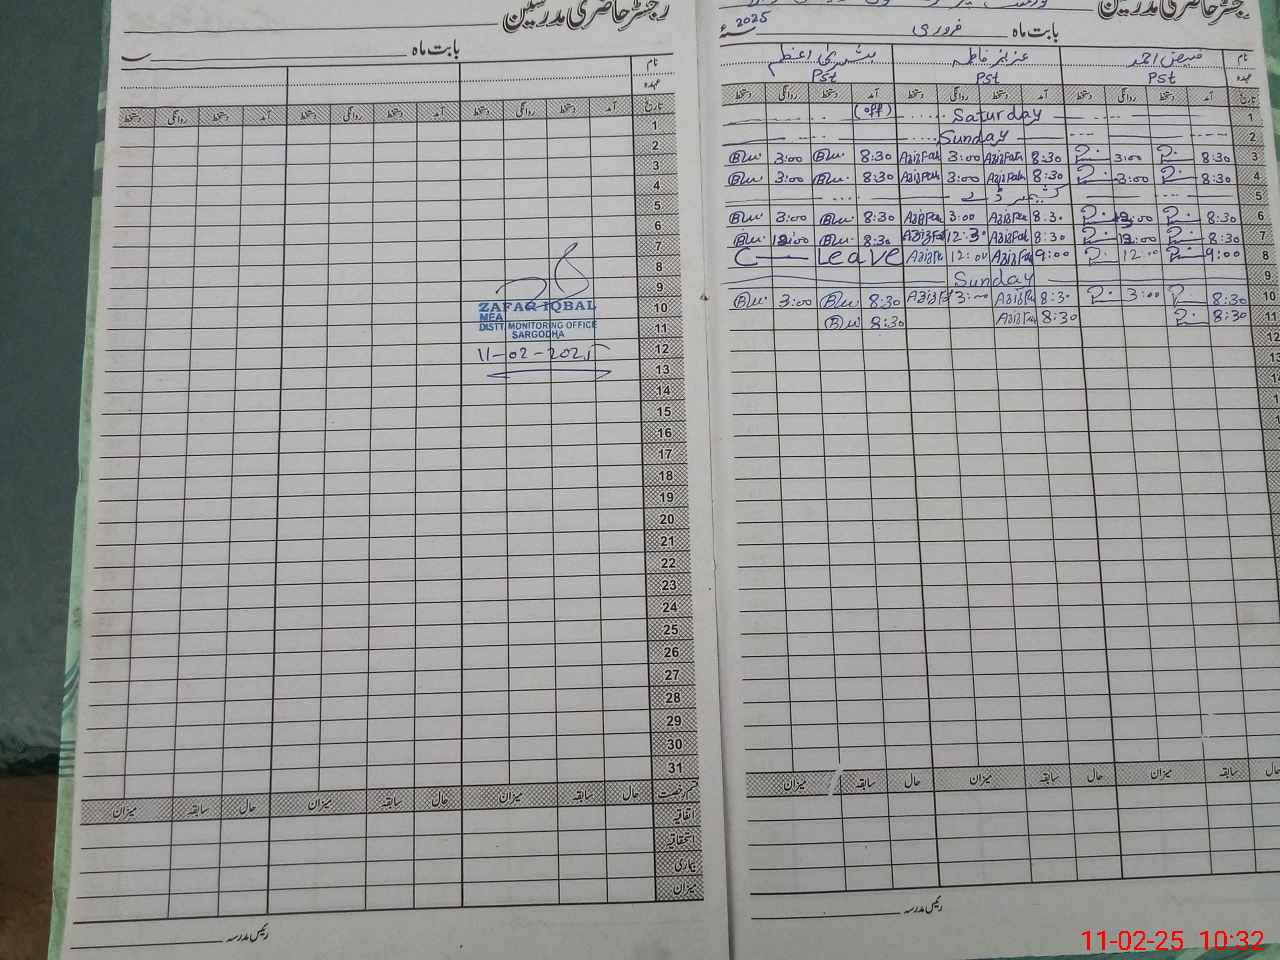 رجسٹر حاضری مدرسین
بابت ماہ
نام
عہدہ
تاریخ آمد دستخط روانگی دستخط آمد دستخط روانگی دستخط آمد دستخط روانگی دستخط
1
2
3
4
5
6
7
8
9
10
11
12
13
14
15
16
17
18
19
20
21
22
23
24
25
26
27
28
29
30
31
ZAFAR IQBAL
MEA
DISTT MONITORING OFFICE
SARGODHA
11-02-2025
قسم رخصت حال سابقہ میزان حال سابقہ میزان حال سابقہ میزان
اتفاقیہ
استحقاقیہ
بیماری
میزان
رئیس مدرسہ
رجسٹر حاضری مدرسین
بابت ماہ فروری 2025
نام فیض احمد عزیز فاطمہ بشریٰ اعظم
عہدہ Pst Pst Pst
تاریخ آمد دستخط روانگی دستخط آمد دستخط روانگی دستخط آمد دستخط روانگی دستخط
1 Saturday (off)
2 Sunday
3 8:30 3:00 8:30 3:00 8:30 3:00
4 8:30 3:00 8:30 3:00 8:30 3:00
5 کشمیر ڈے
6 8:30 8:30 3:00 8:30 3:00
7 8:30 12:00 8:30 12:30 8:30 12:00
8 9:00 12:00 9:00 12:00 C Leave
9 Sunday
10 8:30 3:00 8:30 3:00 8:30 3:00
11 8:30 8:30 8:30
12
13
حال سابقہ میزان حال سابقہ میزان حال سابقہ میزان
رئیس مدرسہ
11-02-25 10:32